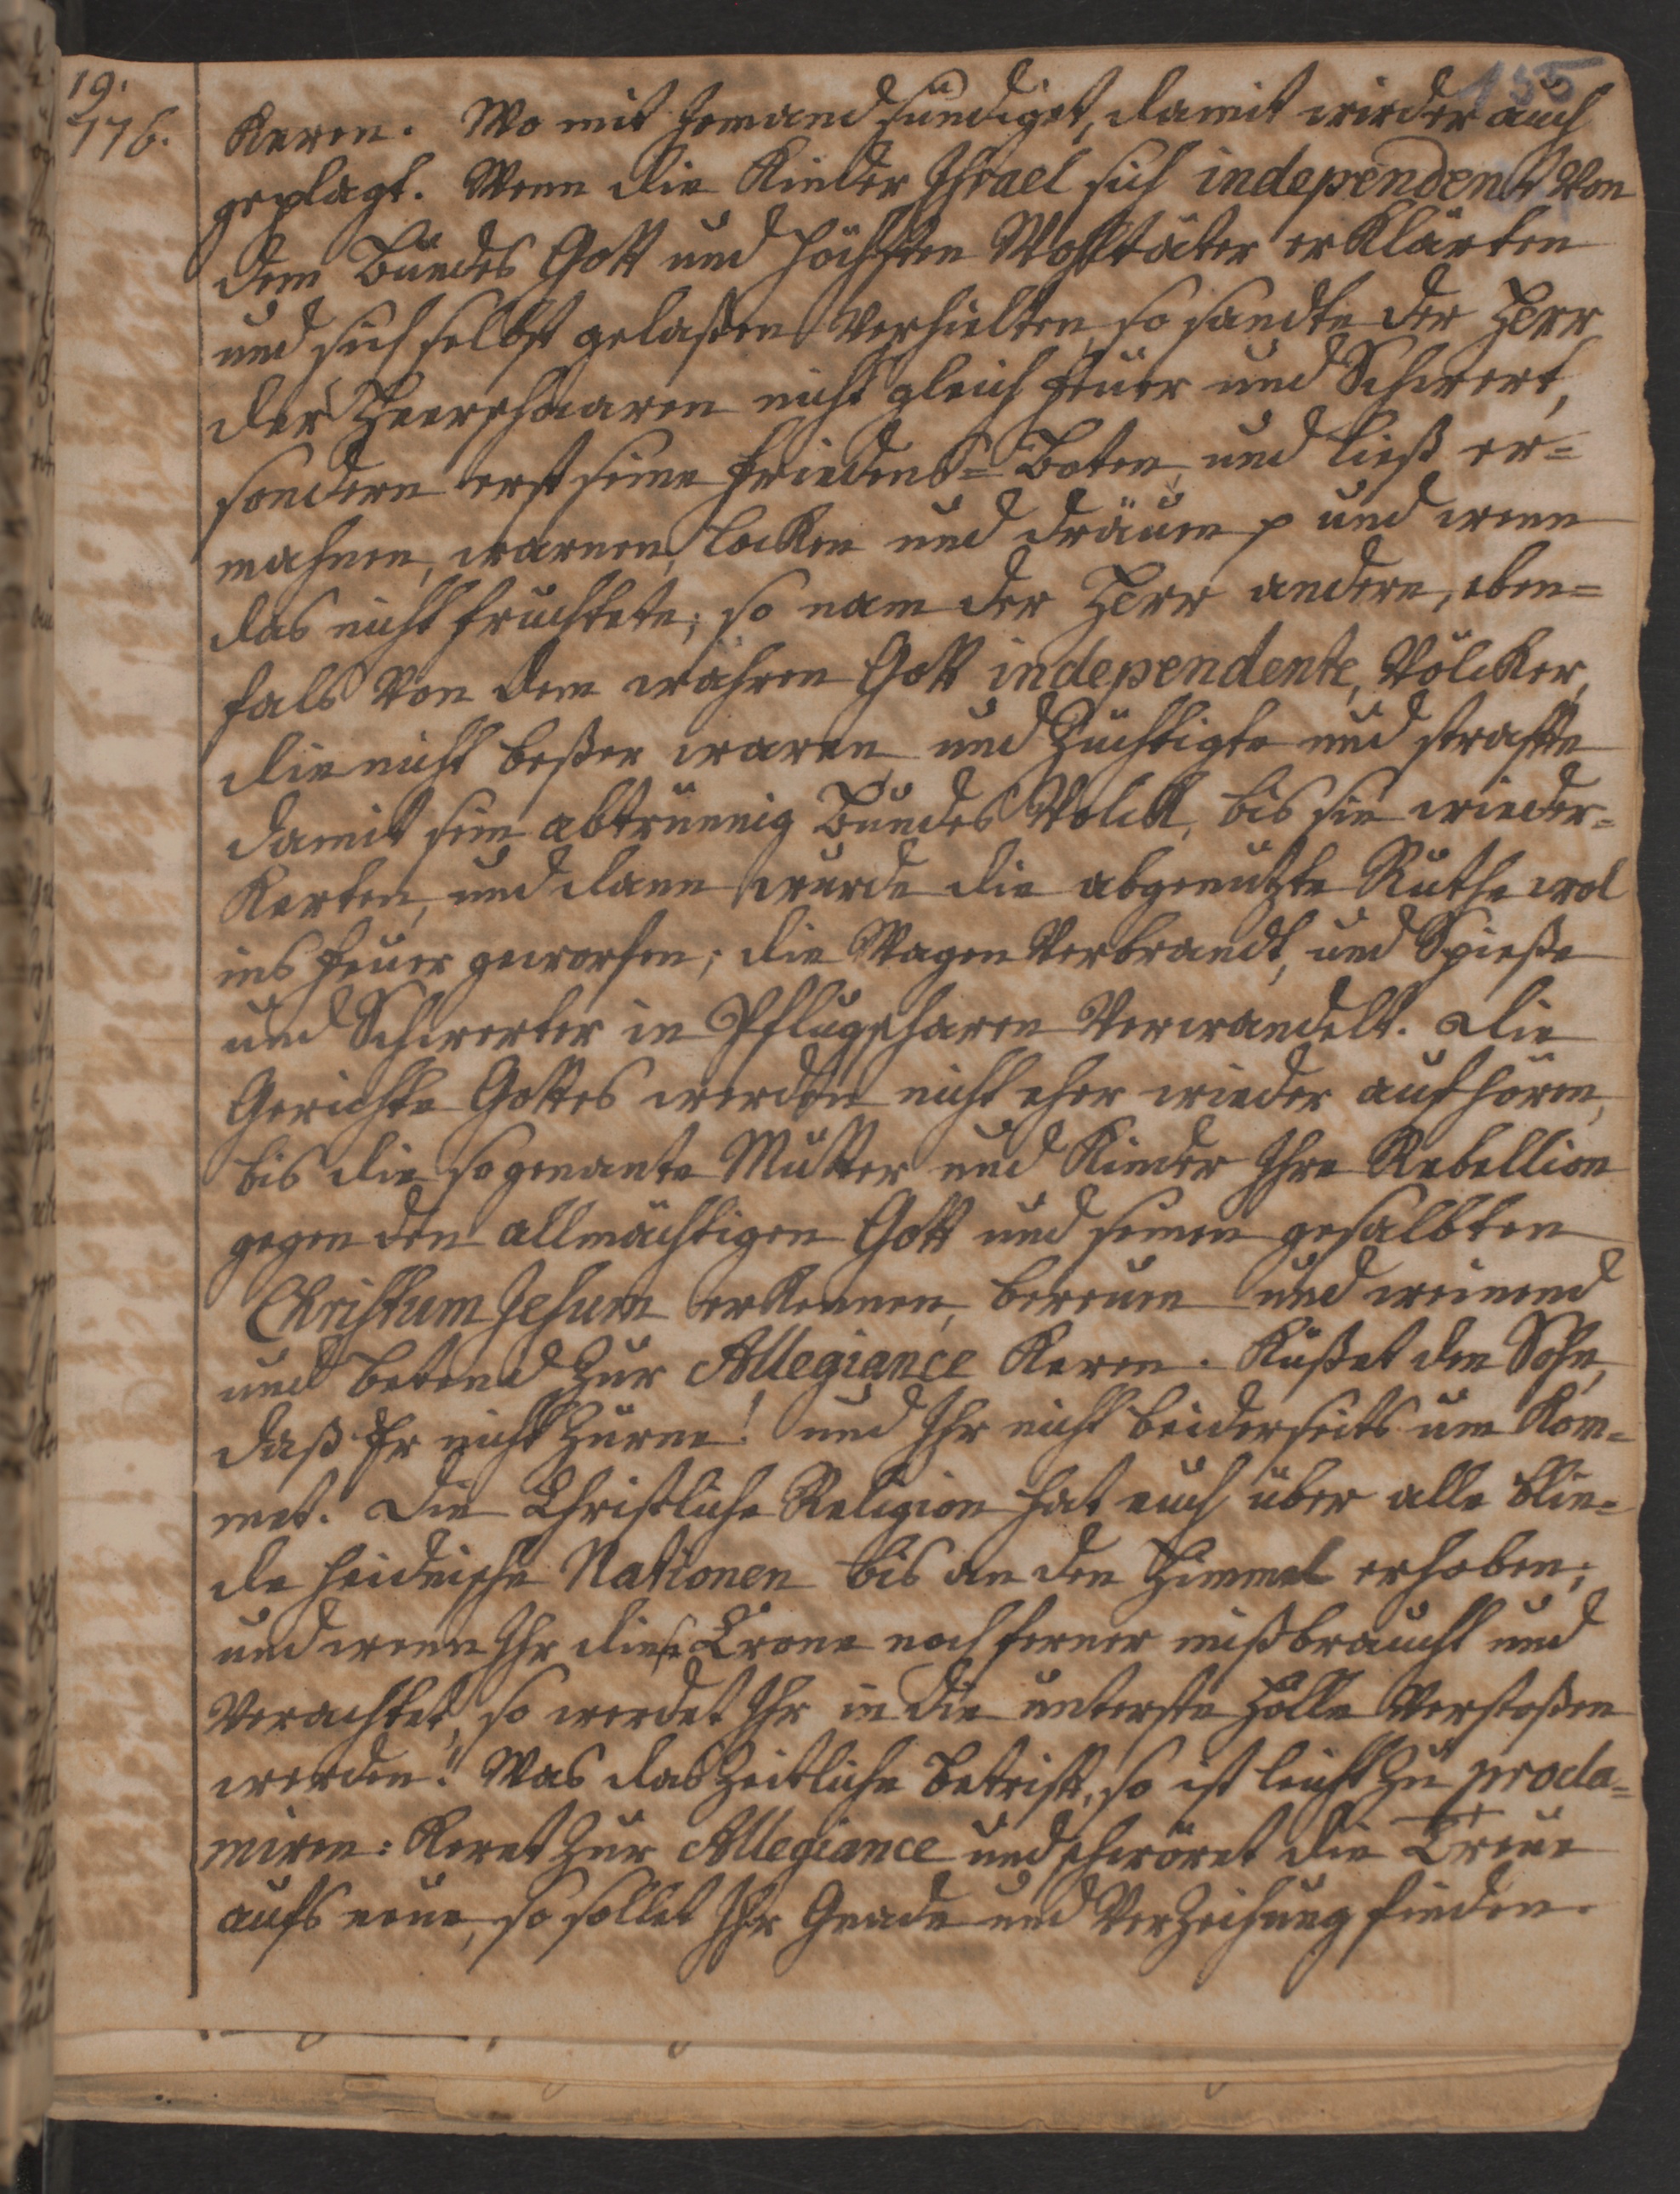 19.
135
776.
Keren. Wo mit Jemand sündiget, damit wird er auch
geplagt. Wenn die Kinder Israel sich independent von
dem Bundes Gott und höchsten Wohltäter erklärten
und sich selbst gelaßen verhielten, so sandte der Herr
der Heerschaaren nicht gleich Feuer und Schwert,
sondern erst seine Friedens-Boten, und ließ er=
mahnen, warnen, locken und dräuen p und wenn
das nicht fruchtete; so nam der Herr andere, eben=
fals von dem wahren Gott independente, Völcker,
die nicht beßer waren und Züchtigte und straffte
damit sein abtrünnig Bundes Volck, bis sie wieder=
Kerten, und dann wurde die abgenutzte Ruthe wol
ins Feuer geworfen; die Wagen verbrandt, und Spieße
und Schwerter in Pflugscharen verwandelt. Die
Gerichte Gottes werden nicht eher wieder aufhören,
bis die sogenante Mutter und Kinder Ihre Rebellion
gegen den allmächtigen Gott und seinen gesalbten
Christum Jesum erkennen, bereuen und weinend
und betend Zur Allegiance Keren. Küßet den Sohn,
daß Er nicht Zürne! und Ihr nicht beiderseits um Kom=
met. Die Christliche Religion hat euch über alle blin=
de heidnische Nationen bis an den Himmel erhoben;
und wenn Ihr diese Crone noch ferner mißbraucht und
verachtet, so werdet Ihr in die unterste Hölle verstoßen
werden! Was das Zeitliche betrift, so ist leicht Zu procla=
miren: Keret Zur Allegiance und schwöret die Treue
aufs neue, so sollet Ihr Gnade und Verzeihung finden.